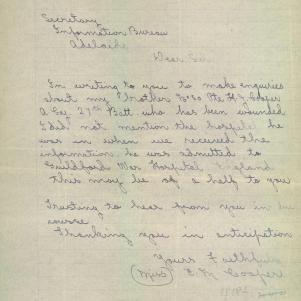 Secretary
Information Bureau
Adelaide
Dear Sir
In writing to you to make enquiries
about my Brother Pte H J Cooper
A Coy 27th Batt who has been wounded
I did not mention the hospital he
was in when we received the
information he was admitted to
Guildford War Hospital England
this may be of a help to you
Trusting to hear from you in due
course
Thanking you in anticipation
Yours Faithfully
(Miss) E M Cooper